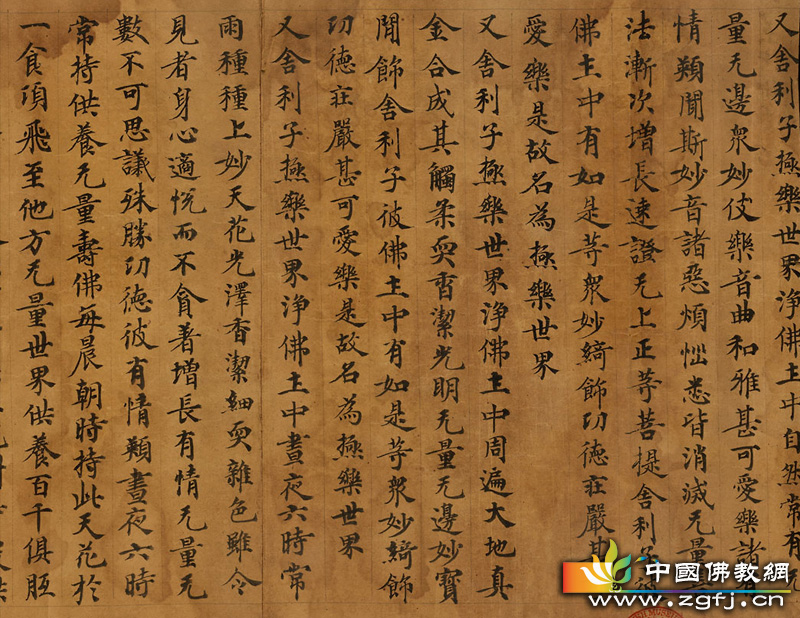 又舍利子極樂世界淨佛土中自然常有
量无邊眾妙伎樂音曲和雅甚可愛樂諸
情類聞斯妙音諸惡煩惱悉皆消滅无量
法漸次增長速證无上正等菩提舍利子
佛土中有如是等眾妙綺飾功德莊嚴甚
愛樂是故名為極樂世界
又舍利子極樂世界淨佛土中周遍大地真
金合成其觸柔耎香潔光明无量无邊妙寶
間飾舍利子彼佛土中有如是等眾妙綺飾
功德莊嚴甚可愛樂是故名為極樂世界
又舍利子極樂世界淨佛土中晝夜六時常
雨種種上妙天花光澤香潔細耎雜色雖令
見者身心適悅而不貪著增長有情无量无
數不可思議殊勝功德彼有情類晝夜六時
常持供養无量壽佛每晨朝時持此天花於
一食頃飛至他方无量世界供養百千俱胝
中國佛教網
www.zgfj.cn